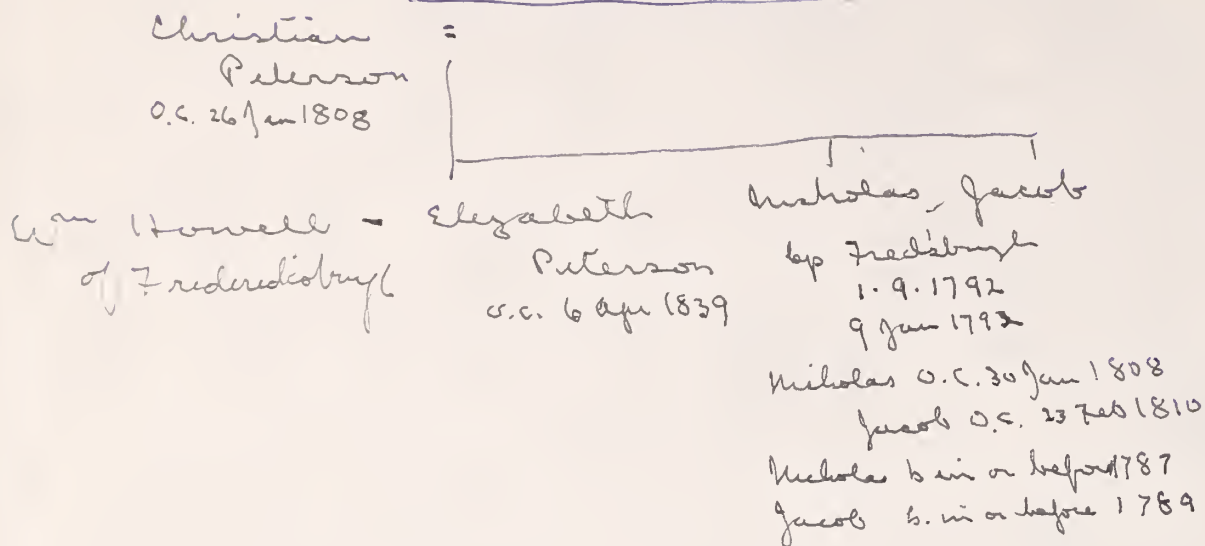 Christian =
Peterson
O.C. 26 Jan 1808
Wm Howell - Elizabeth
of Fredericksburgh
Peterson
O.C. 6 Apr 1839
Nicholas, Jacob
bp Fred'sburgh
1.9.1792
9 Jan 1792
Nicholas O.C. 30 Jan 1808
Jacob O.C. 23 Feb 1810
Nicholas b in or before 1787
Jacob b. in or before 1789